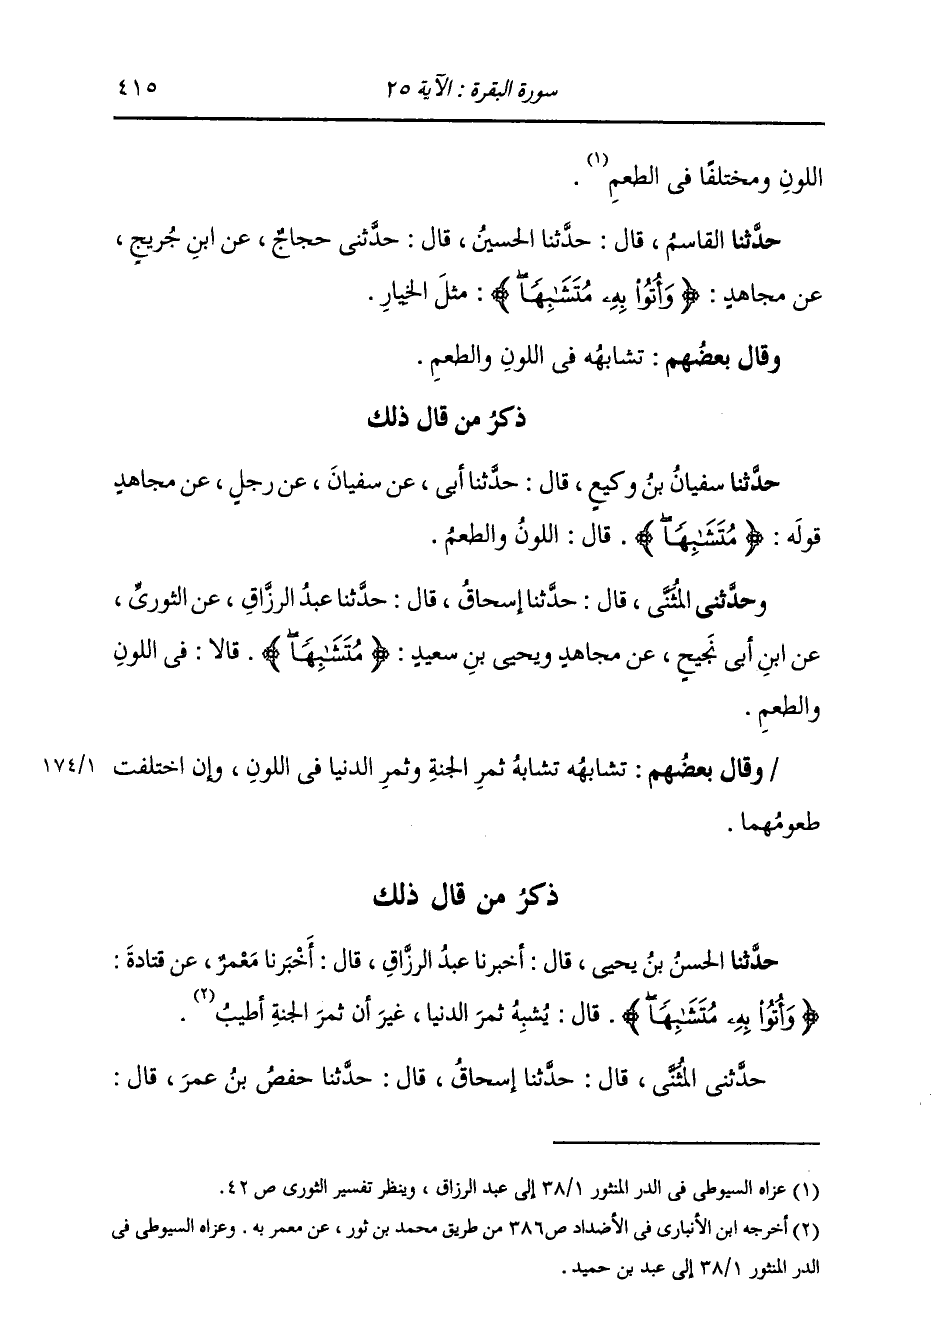 سورة البقرة : الآية ٢٥ ٤١٥
اللونِ ومختلفًا فى الطعمِ(١) .
حدَّثنا القاسمُ ، قال : حدَّثنا الحسينُ ، قال : حدَّثنى حجاجٌ ، عن ابنِ جُريجٍ ،
عن مجاهدٍ : ﴿ وَأُتُوا۟ بِهِۦ مُتَشَٰبِهًاۖ ﴾ : مثلَ الخيارِ .
وقال بعضُهم : تشابهُه فى اللونِ والطعمِ .
ذكرُ من قال ذلك
حدَّثنا سفيانُ بنُ وكيعٍ ، قال : حدَّثنا أبى ، عن سفيانَ ، عن رجلٍ ، عن مجاهدٍ
قولَه : ﴿ مُتَشَٰبِهًاۖ ﴾ . قال : اللونُ والطعمُ .
وحدَّثنى المُثَنَّى ، قال : حدَّثنا إسحاقُ ، قال : حدَّثنا عبدُ الرزَّاقِ ، عن الثورىِّ ،
عن ابنِ أبى نَجيحٍ ، عن مجاهدٍ ويحيى بنِ سعيدٍ : ﴿ مُتَشَٰبِهًاۖ ﴾ . قالا : فى اللونِ
والطعمِ .
/ وقال بعضُهم : تشابهُه تشابهُ ثمرِ الجنةِ وثمرِ الدنيا فى اللونِ ، وإن اختلفت ١٧٤/١
طعومُهما .
ذكرُ من قال ذلك
حدَّثنا الحسنُ بنُ يحيى ، قال : أخبرنا عبدُ الرزَّاقِ ، قال : أَخْبَرنا مَعْمرٌ ، عن قتادةَ :
﴿ وَأُتُوا۟ بِهِۦ مُتَشَٰبِهًاۖ ﴾ . قال : يُشبِهُ ثمرَ الدنيا ، غيرَ أن ثمرَ الجنةِ أطيبُ(٢) .
حدَّثنى المُثَنَّى ، قال : حدَّثنا إسحاقُ ، قال : حدَّثنا حفصُ بنُ عمرَ ، قال :
(١) عزاه السيوطى فى الدر المنثور ٣٨/١ إلى عبد الرزاق ، وينظر تفسير الثورى ص ٤٢.
(٢) أخرجه ابن الأنبارى فى الأضداد ص٣٨٦ من طريق محمد بن ثور ، عن معمر به . وعزاه السيوطى فى
الدر المنثور ٣٨/١ إلى عبد بن حميد .